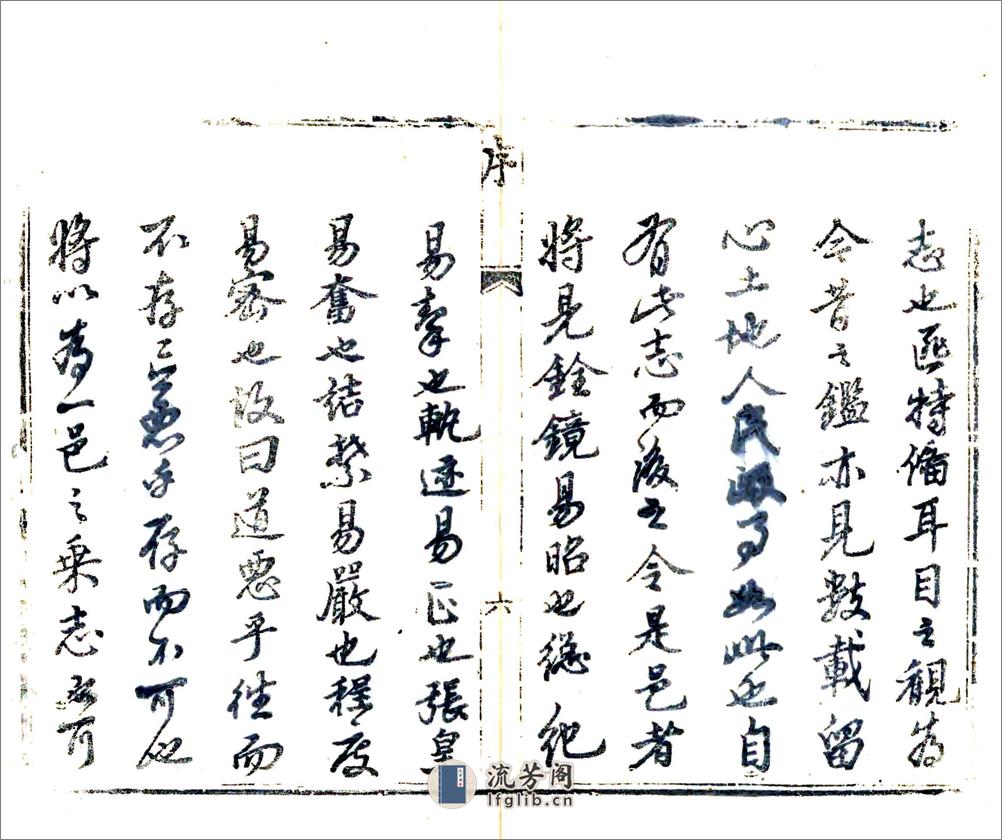 志也匪特脩耳目之觀為
今昔之鑑亦見數載留
心土地人民政事如此也自
有此志而後之令是邑者
將見銓鏡易昭也總紀
序
六
易挈也軌迹易正也張皇
易奮也結禁易嚴也程度
易密也故曰道惡乎往而
不存言惡乎存而不可也
將以為一邑之乘志亦可
流芳阁
lfglib.cn